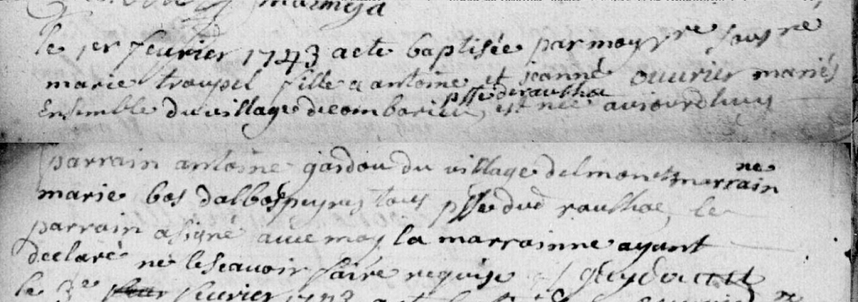 le 1er fevrier 1743 a ete baptisée par moy vre sous ne
marie troupel fille a antoine et jeanne ouvrier mariés
psse de raulhac
Ensemble du village de combarieu, est née aujourdhuy
parrain antoine gardou du village delmon et marrain
ne
marie bos dalbospeyre, tous psse dud raulhac, le
parrain a signé avec moy la marrainne ayant
declaré ne le scavoir faire requise
le 3e fevrier 1743 a ete